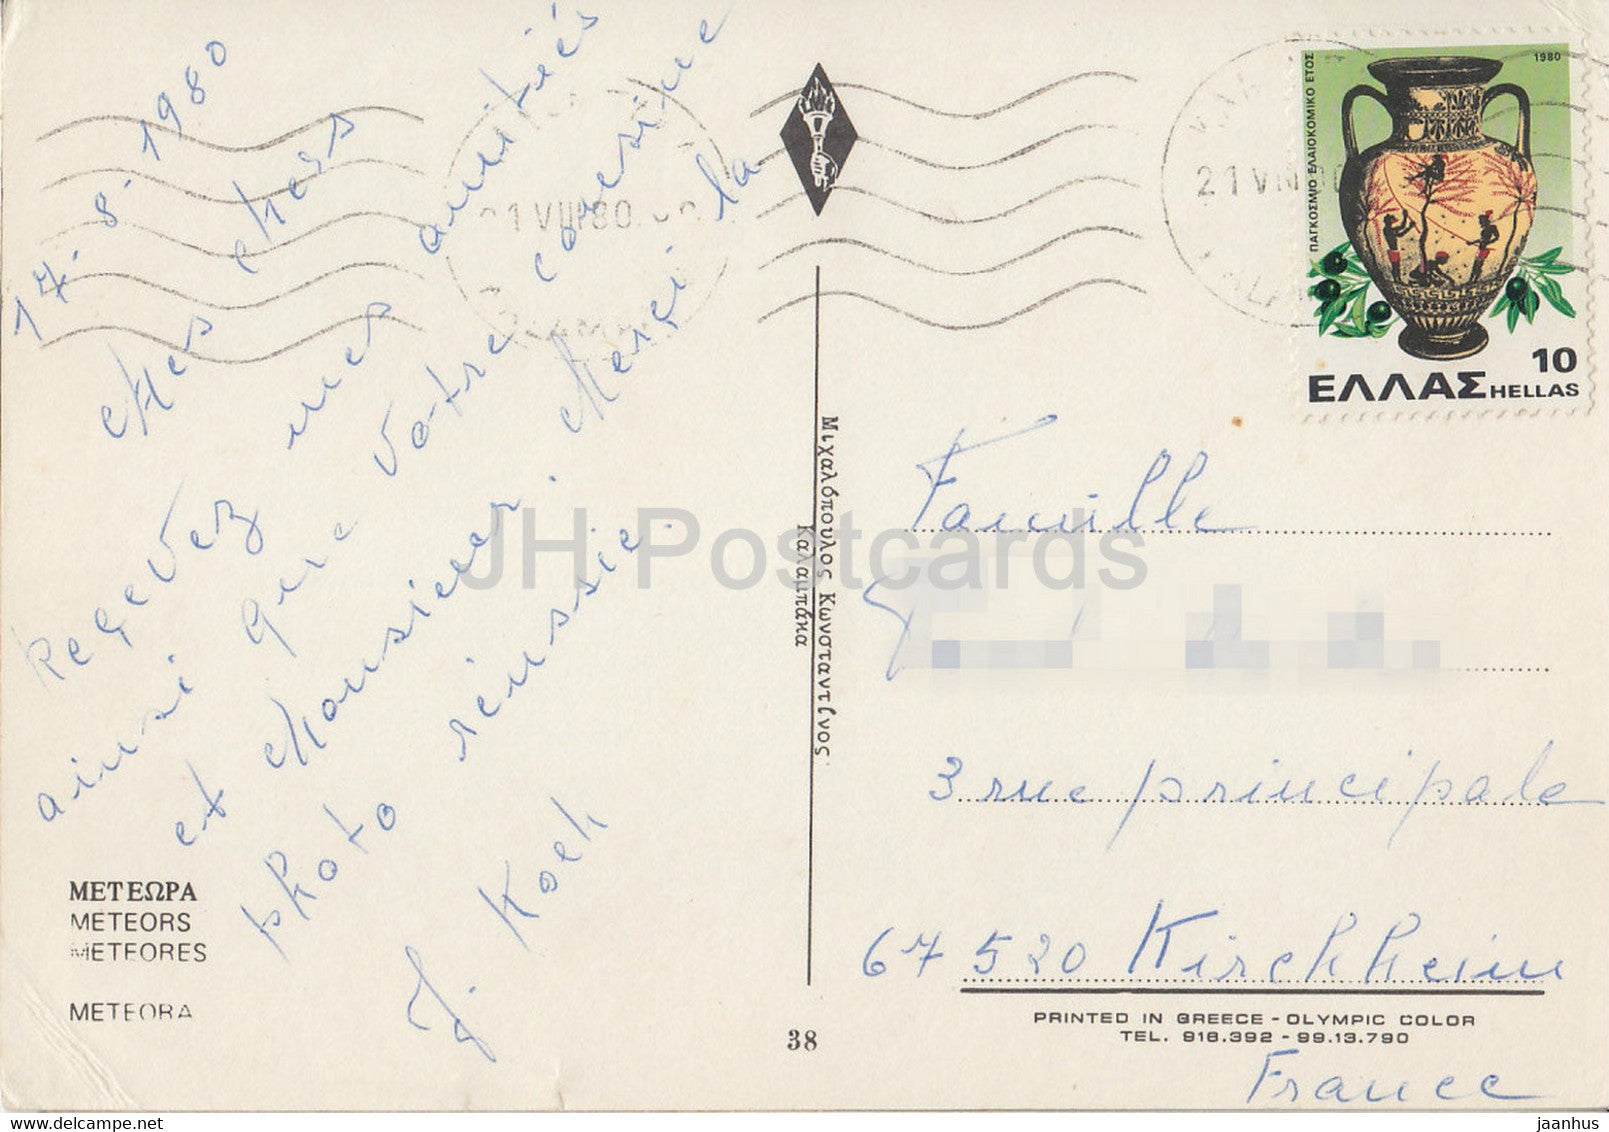 17.8.1980
Mes chers
Regevez mes amitiés
ainsi que votre cousine
et Monsieur. Merçi la
photo réussie.
J. Koch
ΜΕΤΕΩΡΑ
METEORS
METEORES
METEORA
38
Μιχαλόπουλος Κωνσταντῖνος
Καλαμπάκα
21 VIII 80
21 VIII 80
ΠΑΓΚΟΣΜΙΟ ΕΛΑΙΟΚΟΜΙΚΟ ΕΤΟΣ
1980
10
ΕΛΛΑΣ HELLAS
Famille
3 rue principale
67520 Kirchheim
PRINTED IN GREECE - OLYMPIC COLOR
TEL. 918.392 - 99.13.790
France
JH Postcards
jaanhus